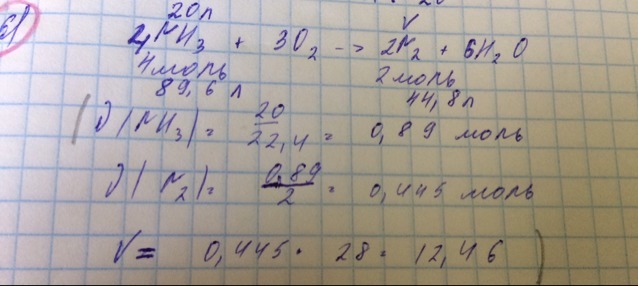 б)
20л V
4NH₃ + 3O₂ → 2N₂ + 6H₂O
4 моль 2 моль
89,6 л 44,8л
( ν(NH₃) = 20/22,4 = 0,89 моль
ν(N₂) = 0,89/2 = 0,445 моль
V = 0,445 · 28 = 12,46 )